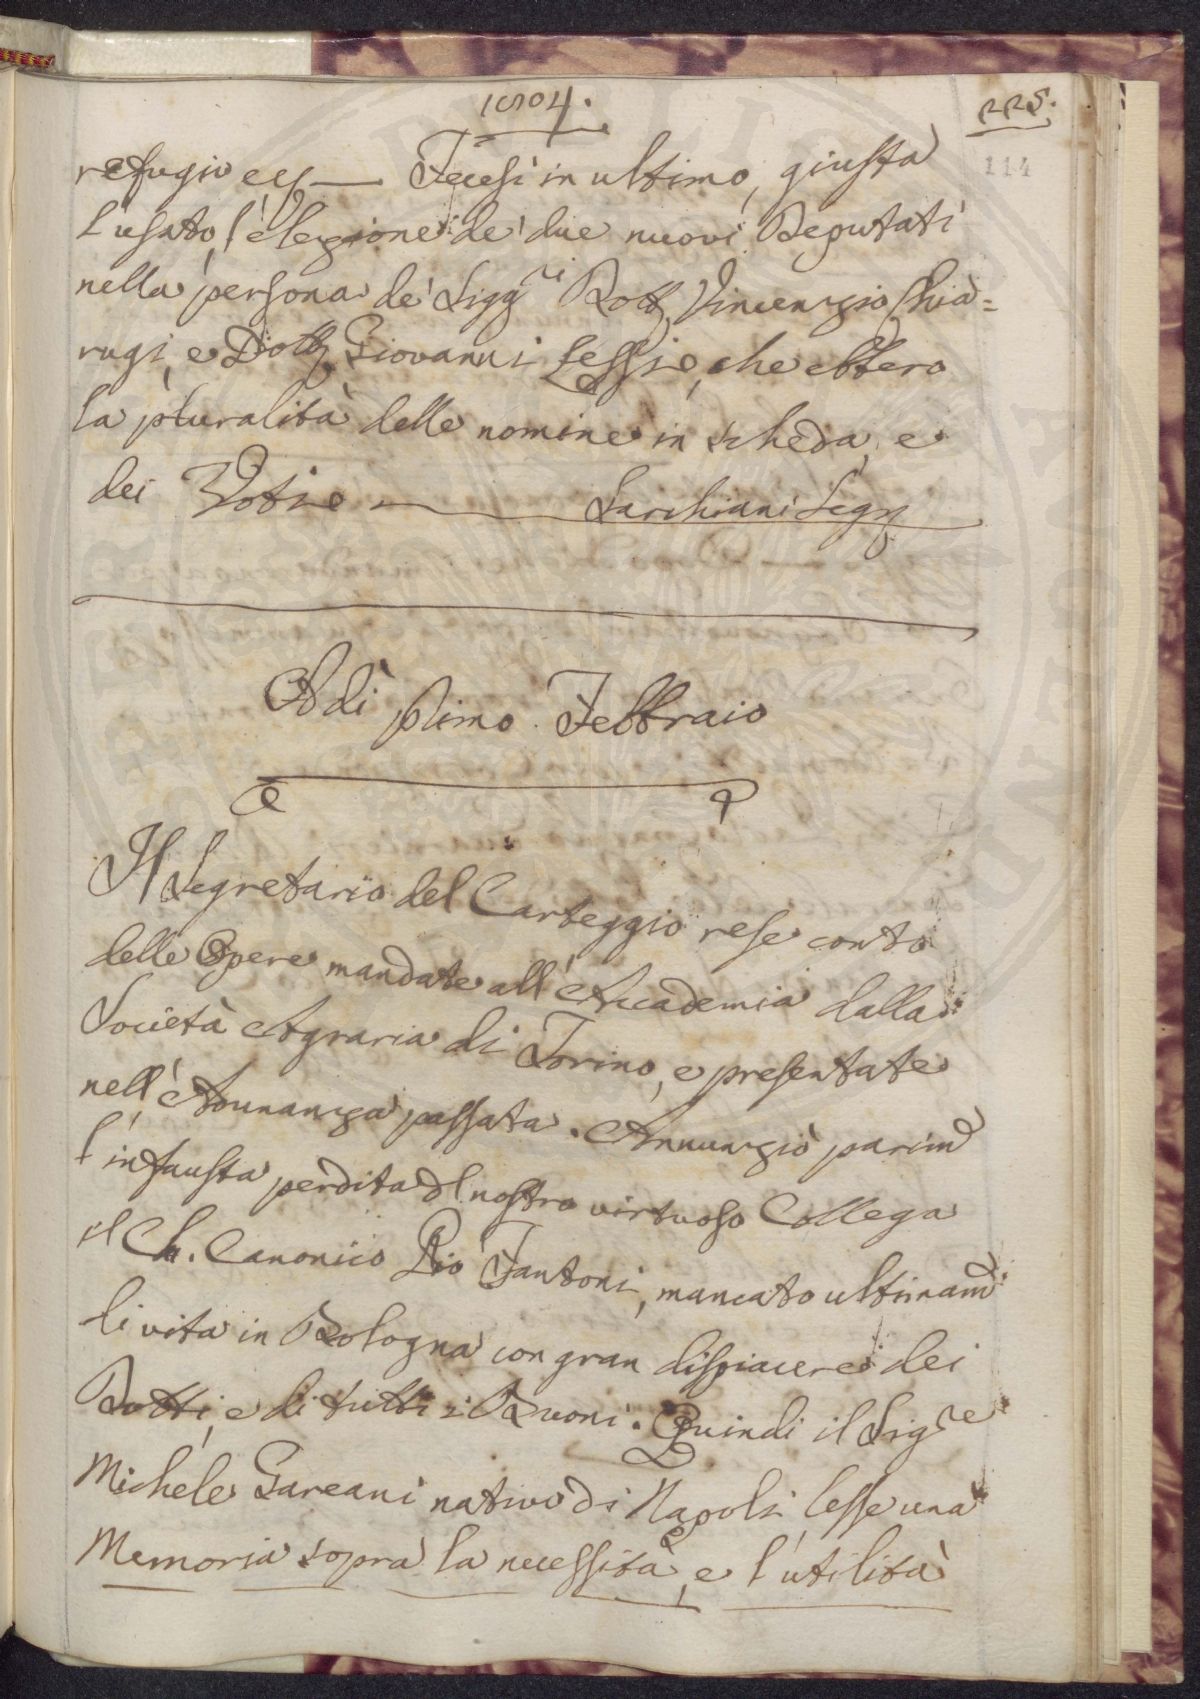 1804.
225.
114
refugio ec. — Fecesi in ultimo, giusta
l'usato, l'elezione de' due nuovi Deputati
nella persona de' Sigg.ri Dott. Vincenzio Chia=
rugi, e Dott. Giovanni Lessi, che ebbero
la pluralità delle nomine in scheda, e
dei Voti — Sarchiani Seg.
Adì primo Febbraio
Il Segretario del Carteggio rese conto
delle Opere mandate all'Accademia dalla
Società Agraria di Torino, e presentate
nell'Adunanza passata. Annunziò parim.
l'infausta perdita del nostro virtuoso Collega
il Ch. Canonico Pio Fantoni, mancato ultimam.
di vita in Bologna con gran dispiacere dei
Dotti, e di tutti i Buoni. Quindi il Sig.re
Michele Gareani nativo di Napoli lesse una
Memoria sopra la necessità, e l'utilità